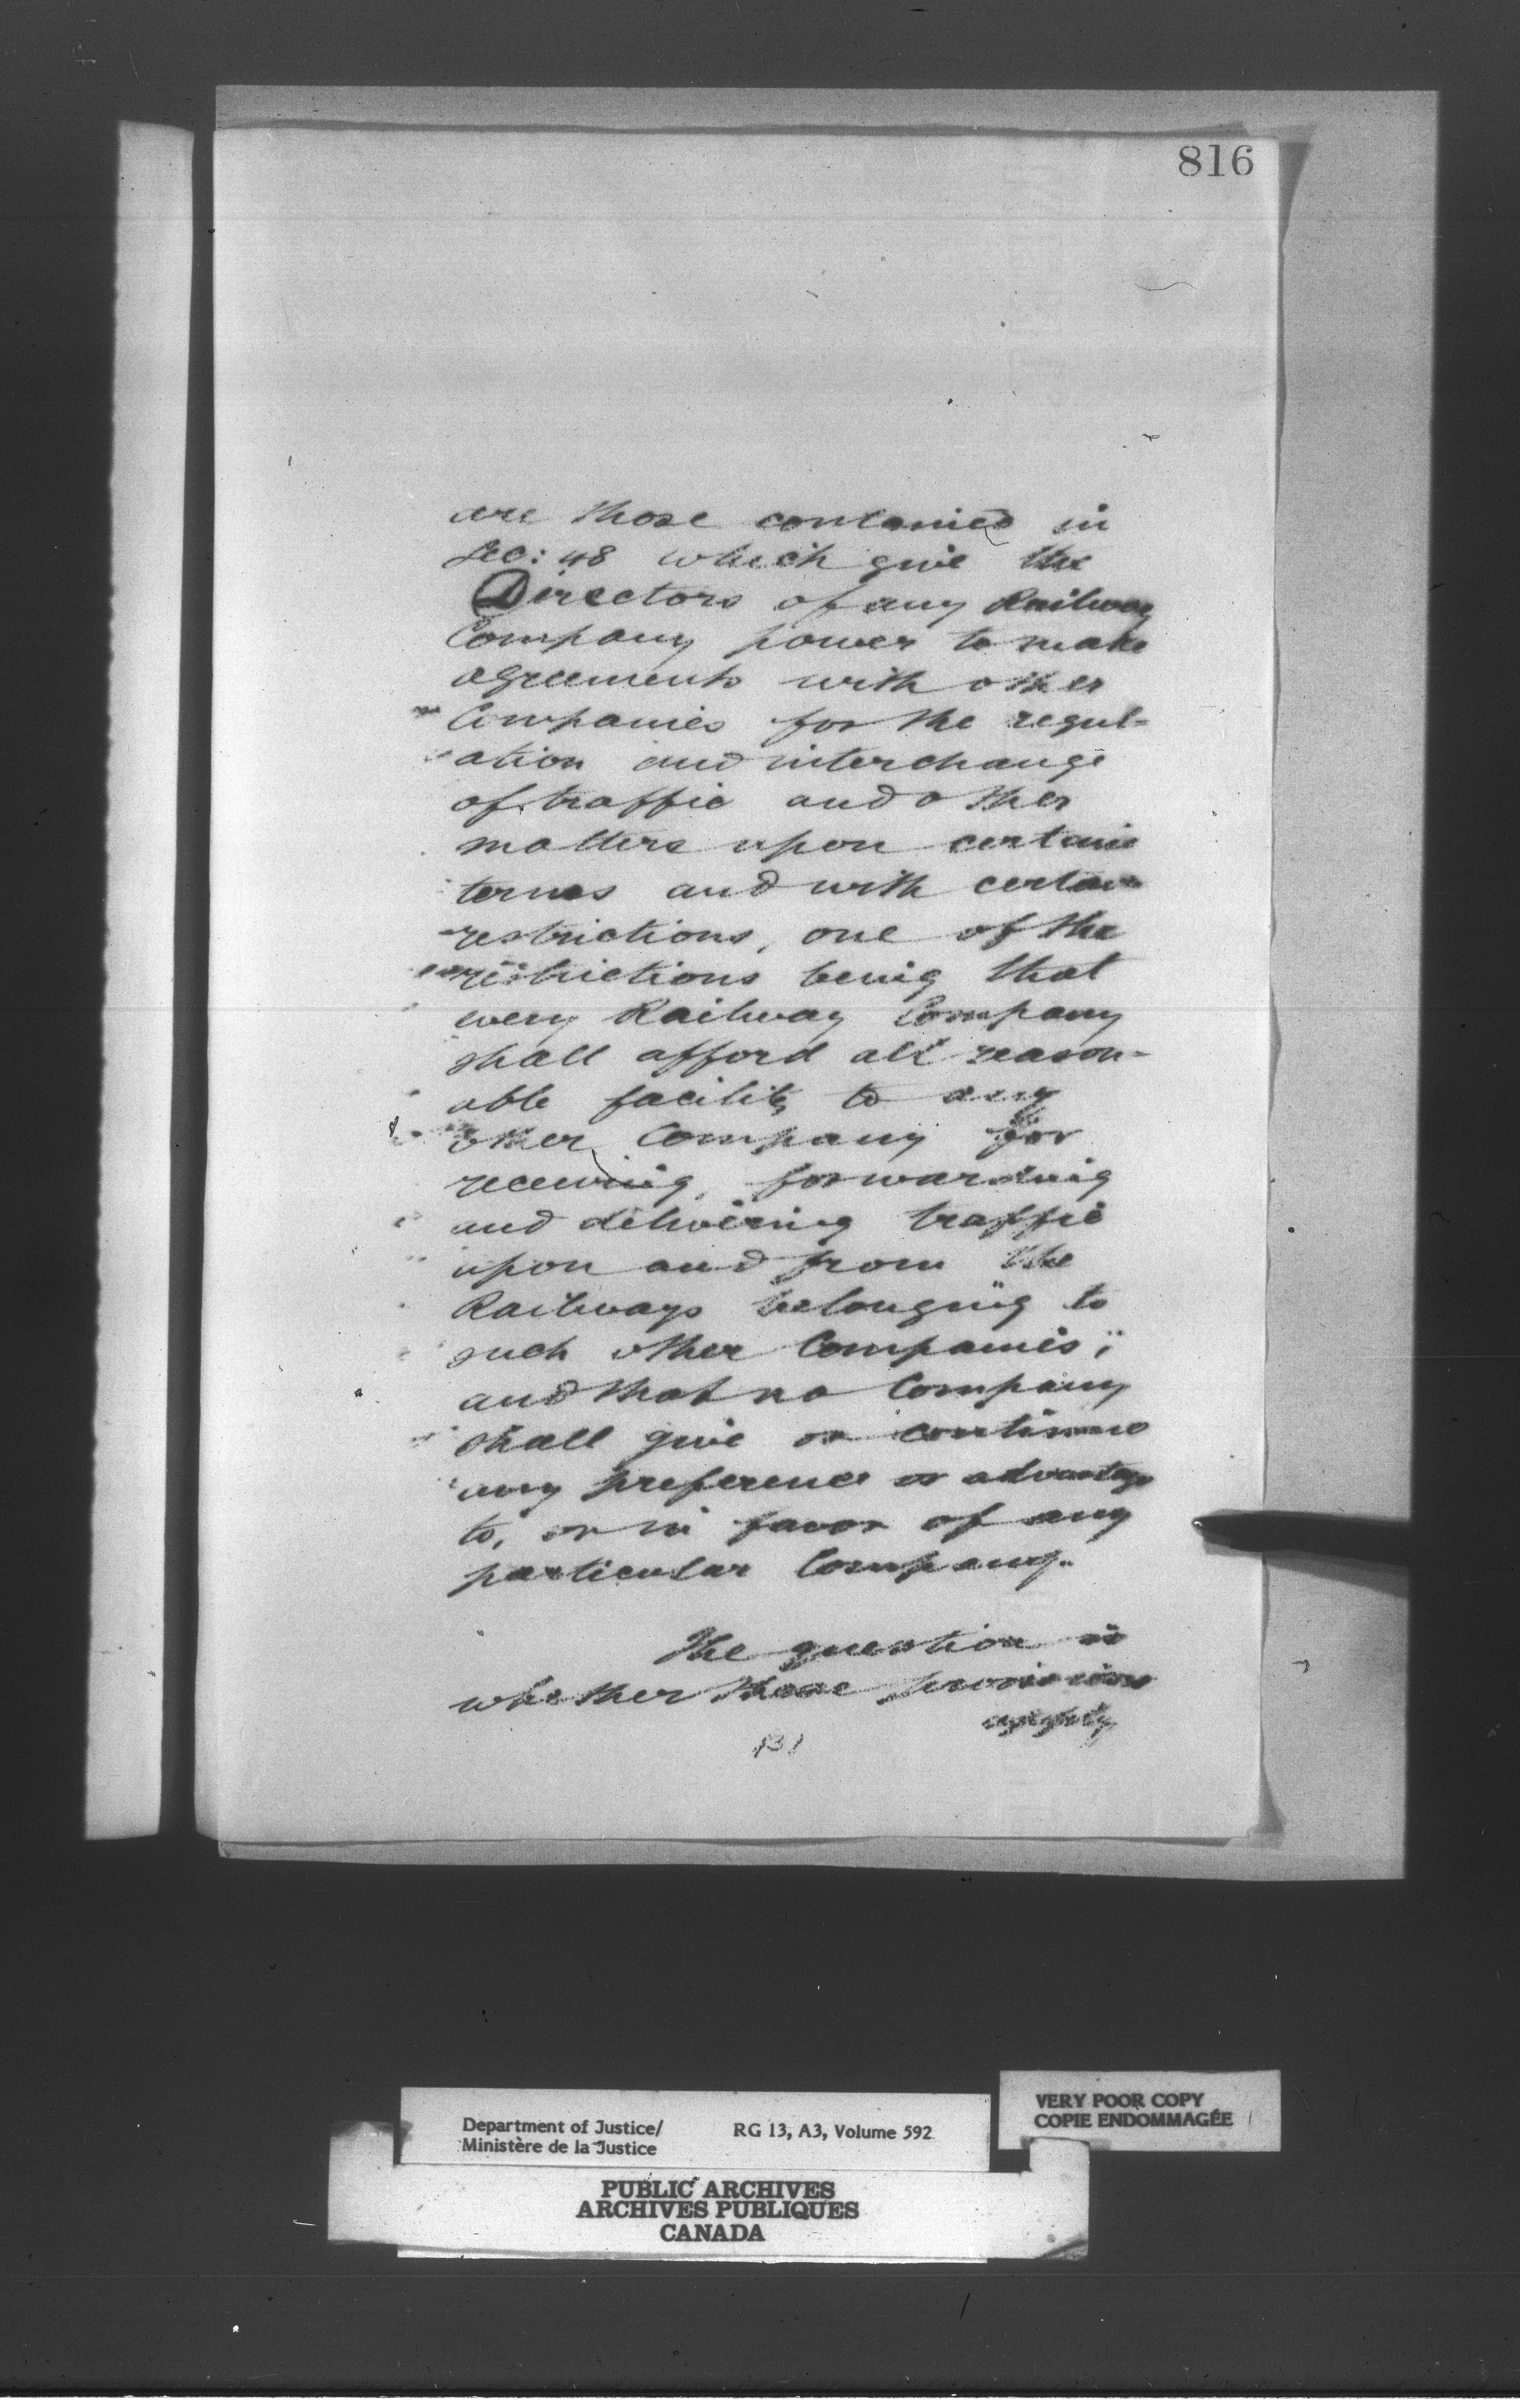 816
are those contained in
Sec: 48 which give the
Directors of any Railway
Company power to make
agreements with other
Companies for the regul-
ation and interchange
of traffic and other
matters upon certain
terms and with certain
restrictions, one of the
restrictions being that
every Railway Company
shall afford all reason-
able facility to any
other Company for
receiving, forwarding
and delivering traffic
upon and from the
Railways belonging to
such other Companies;
and that no Company
shall give or continue
any preference or advantage
to, or in favor of any
particular Company.
The question is
whether these provisions
apply
Department of Justice/
Ministère de la Justice
RG 13, A3, Volume 592
VERY POOR COPY
COPIE ENDOMMAGÉE
PUBLIC ARCHIVES
ARCHIVES PUBLIQUES
CANADA